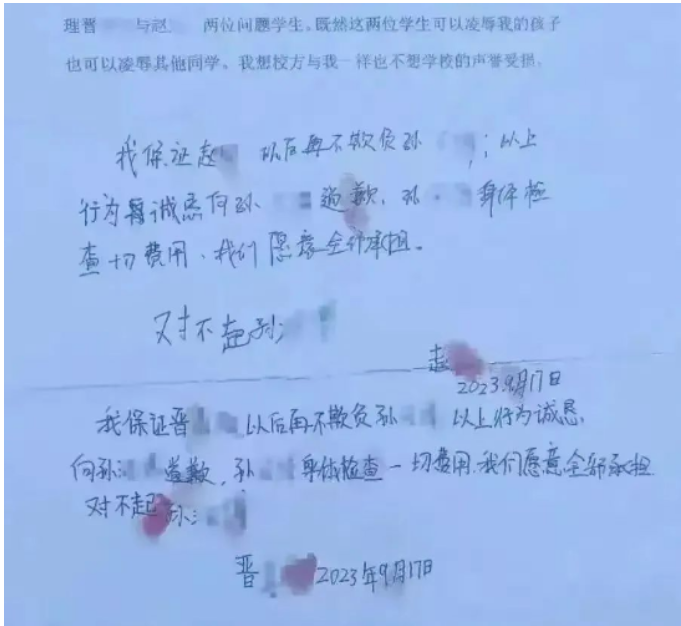 理晋 与赵 两位问题学生。既然这两位学生可以凌辱我的孩子
也可以凌辱其他同学。我想校方与我一样也不想学校的声誉受损。
我保证赵 以后再不欺负孙 ；以上
行为 诚恳向孙 道歉，孙 身体检
查一切费用、我们愿意全部承担。
对不起孙
赵
2023.9月17日
我保证晋 以后再不欺负孙 以上行为诚恳
向孙 道歉，孙 身体检查一切费用，我们愿意全部承担
对不起孙
晋 2023年9月17日